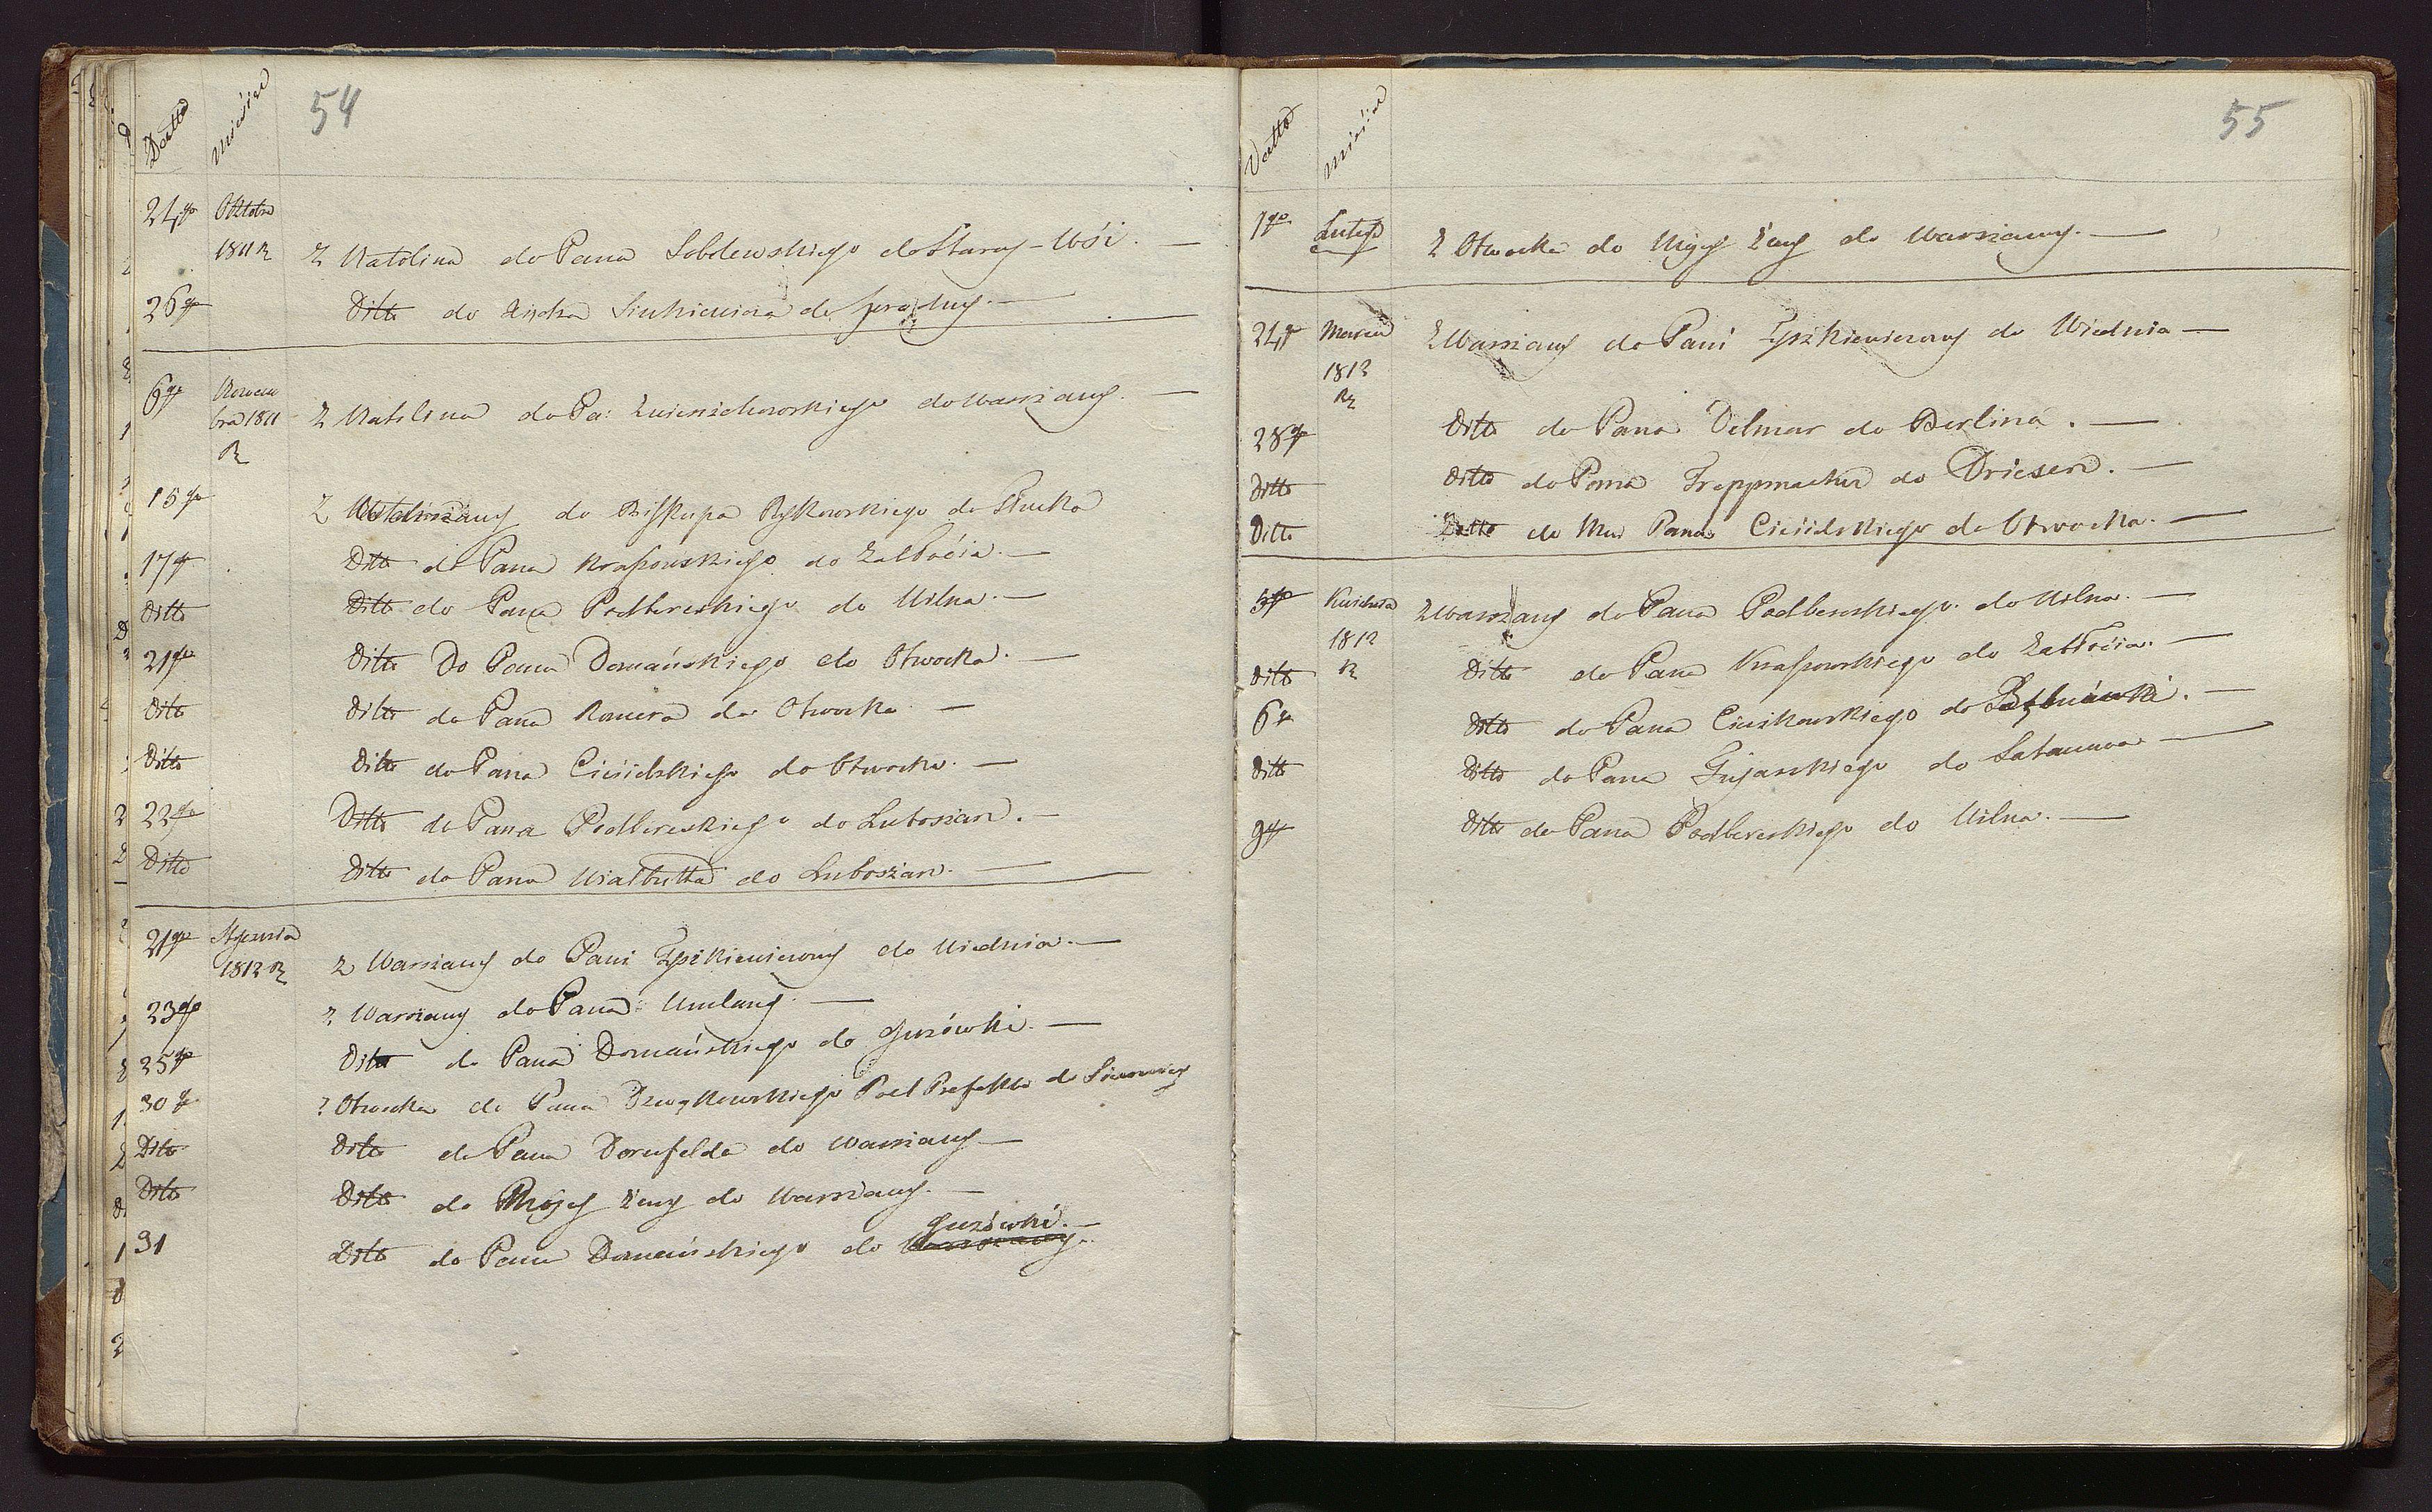 54
Datto Miesiąc
24go Oktobra
1811 R Z Natolina do Pana Sobolewskiego do Starey-Wśi. —
26go Ditto do Xiędza Sinkiewicza do —
6go Novem
bra 1811 Z Natolina do Pa: do Warszawy. —
R
15go Z do Biskupa Rykowskiego do Słucka
17go Ditto do Pana Krassowskiego do Załbocia. —
Ditto Ditto do Pana Podbereskiego do Wilna. —
21go Ditto Do Pana Domańskiego do Otwocka. —
Ditto Ditto do Pana Romera do Otwocka —
Ditto Ditto do Pana Cieśielskiego do Otwocka. —
22go Ditto do Pana Podbereskiego do Luboszan. —
Ditto Ditto do Pana Wiałbutta do Luboszan. —
21go Stycznia
1812 R Z Warszawy do Pani Tyszkiewiczowy do Wiednia. —
23go Z Warszawy do Pana Umlang. —
25go Ditto do Pana Domańskiego do Guzówki. —
30go Z Otwocka do Pana Dziewątkowskiego Pod Prefekta do
Ditto Ditto do Pana Dornfelda do Warszawy —
Ditto Ditto do Mojey Żony do Warszawy. —
Guzówki. —
31 Ditto do Pana Domańskiego do Warszawy.
55
Datto Miesiąc
1go Lutego Z Otwocka do Mojey Żony do Warszawy. —
24go Marca Z Warszawy do Pani Tyszkiewiczowy do Wiednia —
1812
R
28go Ditto do Pana Delmar do Berlina. —
Ditto Ditto do Pana Treppmacher do Driesen. —
Ditto Ditto do Pana Cieśielskiego do Otwocka. —
5go Kwietnia Z Warszawy do Pana Podbereskiego do Wilna. —
1812
Ditto R Ditto do Pana Krassowskiego do Załbocia. —
6go Ditto do Pana Cieszkowskiego do —
Ditto Ditto do Pana Trojarskiego do Satanowa —
9go Ditto do Pana Podbereskiego do Wilna. —